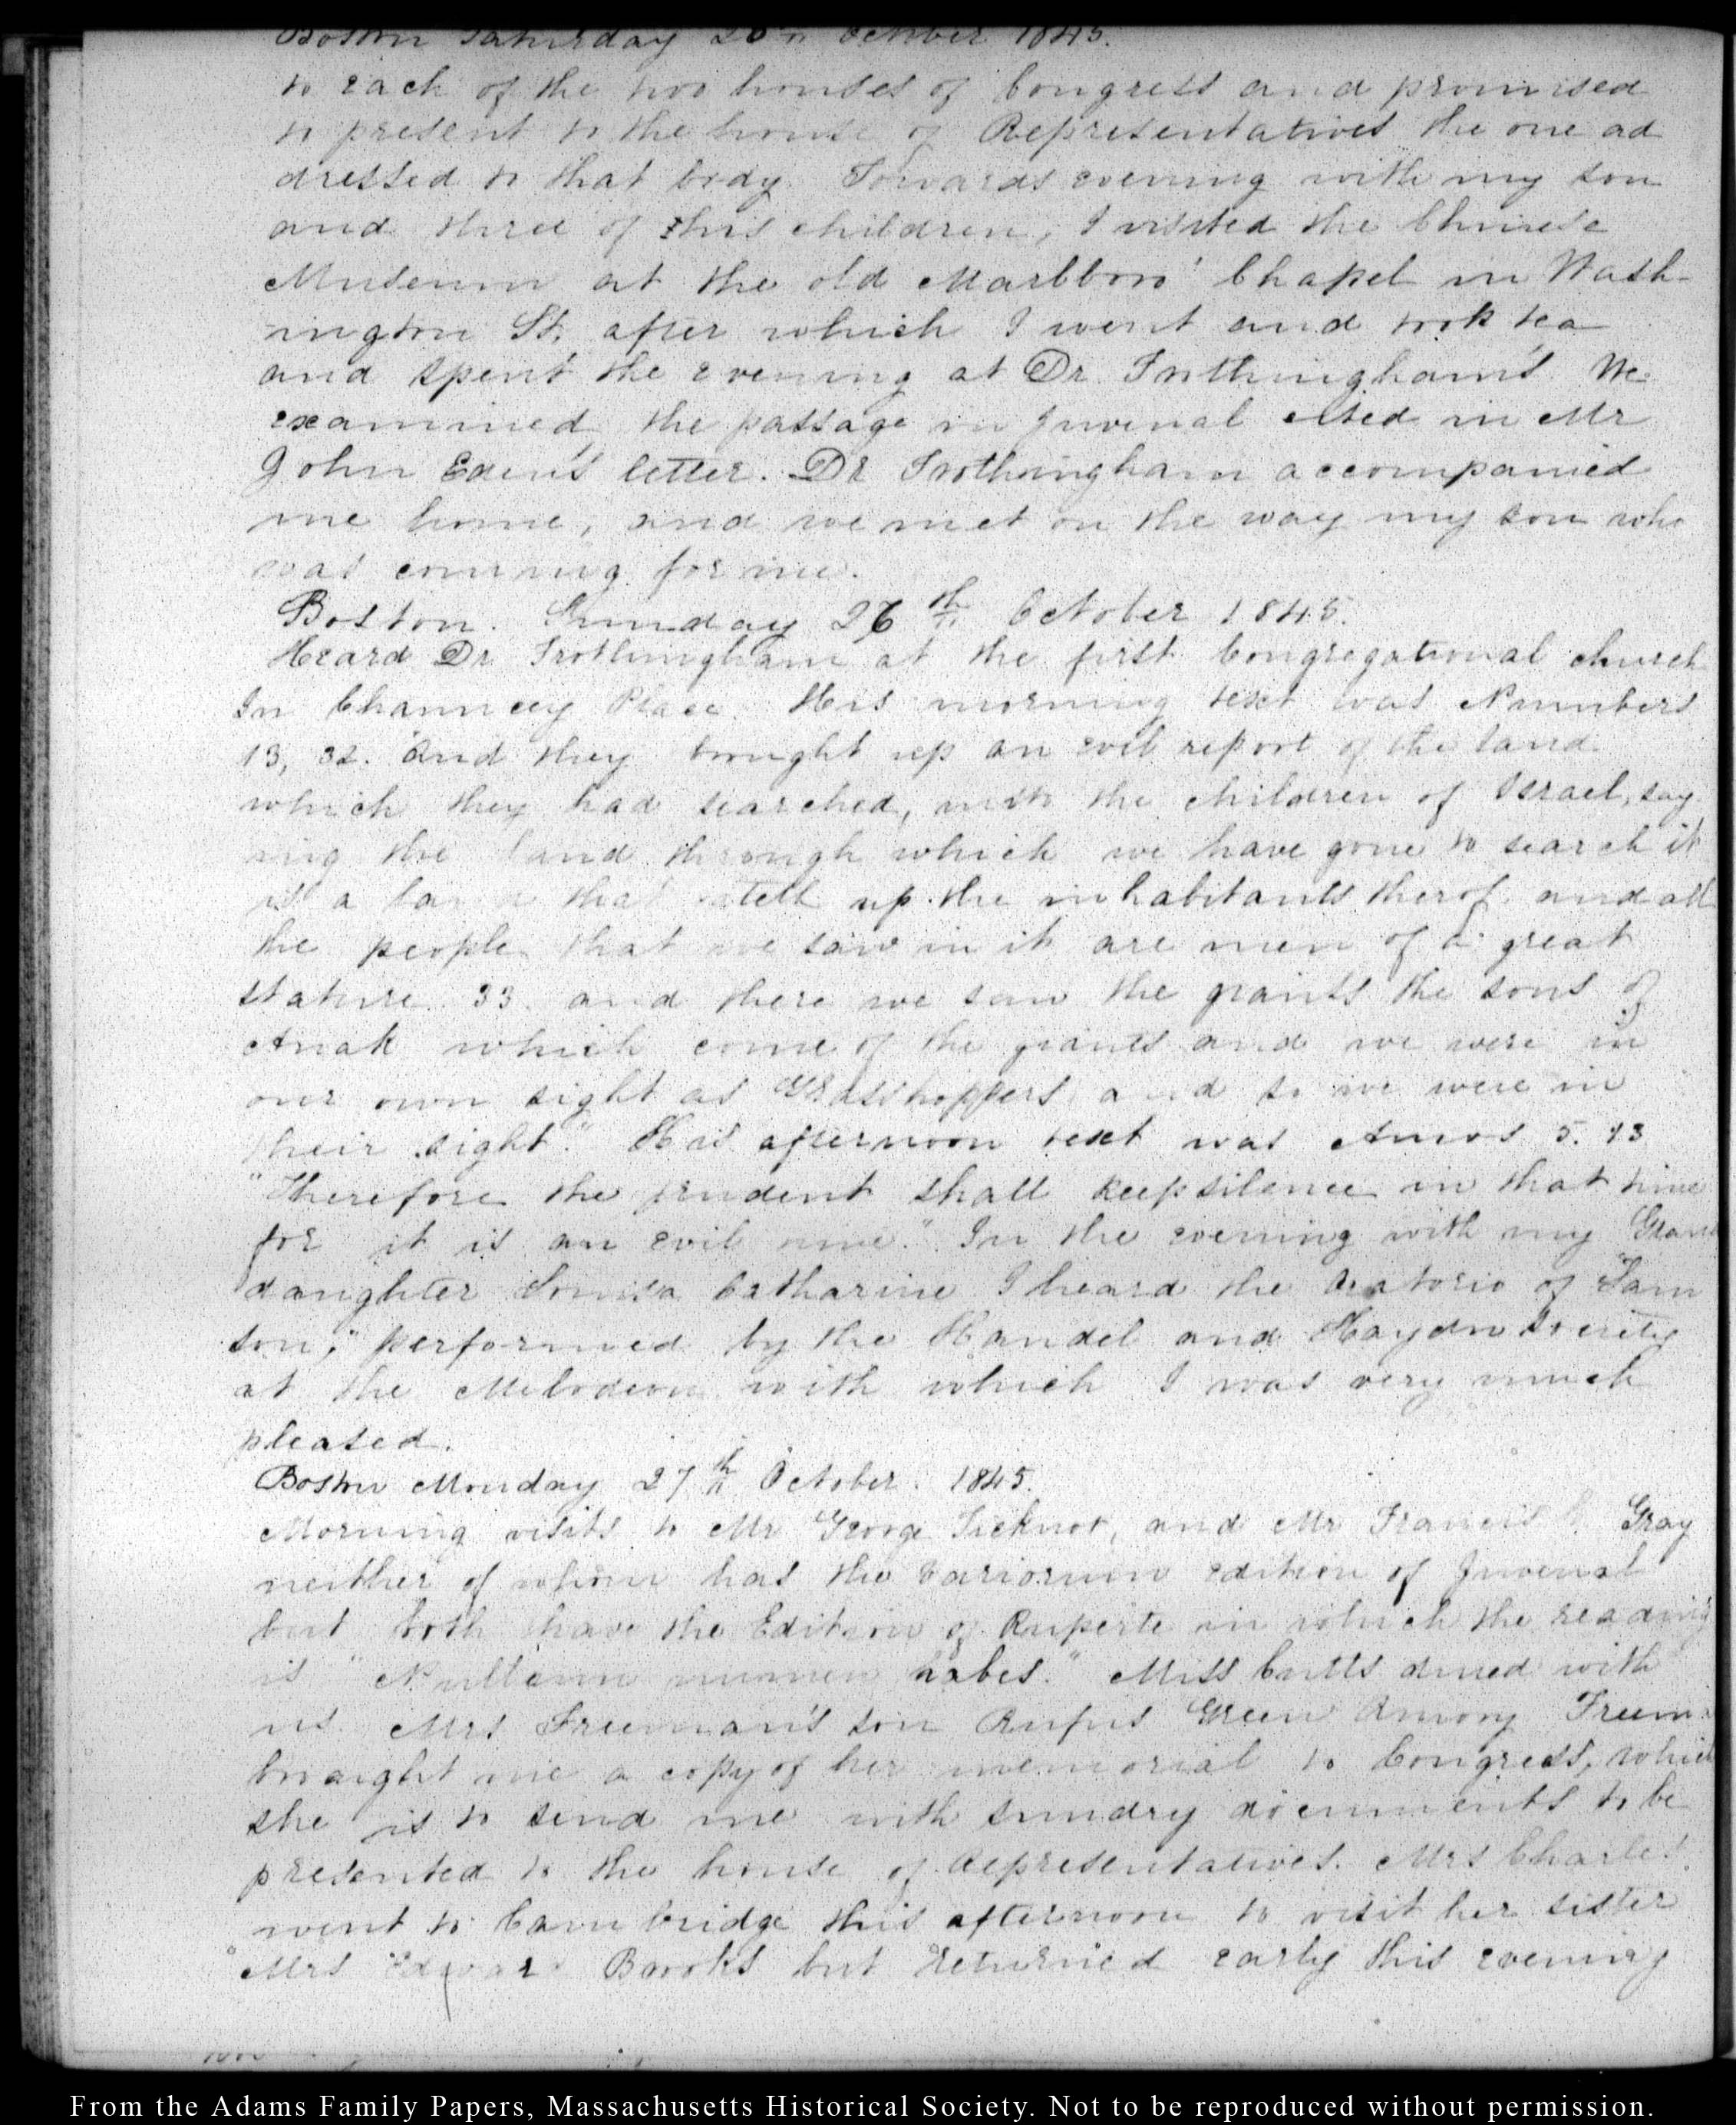 Boston Saturday 25th October 1845.
to each of the two houses of Congress and promised
to present to the house of Representatives the one ad
dressed to that body. Towards evening with my son
and three of his children, I visited the Chinese
Museum at the old Marlboro' Chapel in Wash-
ington St. after which I went and took tea
and spent the evening at Dr. Frothingham's. We
examined the passage in Juvenal cited in Mr
John Eden's letter. Dr Frothingham accompanied
me home, and we met on the way my son who
was coming for me.
Boston. Sunday 26th October 1845.
Heard Dr Frothingham at the first Congregational church
In Chauncey Place. His morning text was Numbers
13, 32. and they brought up an evil report of the land
which they had searched, unto the children of Israel, say
ing the land through which we have gone to search it
is a land that eateth up the inhabitants therof and all
the people that we saw in it are men of a great
stature. 33. and there we saw the giants the sons of
Anak which come of the giants and we were in
our own sight as Grasshoppers, and so we were in
their sight." His afternoon text was Amos 5. 13
"Therefore the prudent shall keep silence in that time
for it is an evil time." In the evening with my Grand
daughter Louisa Catharine I heard the Oratorio of "Sam
son," performed by the Handel and Haydn Society
at the Melodeon with which I was very much
pleased.
Boston Monday 27th October. 1845.
Morning visits to Mr George Ticknor, and Mr Francis C. Gray
neither of whom has the variorum edition of Juvenal
but both have the Edition of Ruperte in which the reading
is "Nullum numen habes." Miss Cutts dined with
us. Mrs Freeman's son Rufus Green Amory Freem
brought me a copy of her memorial to Congress, which
she is to send me with sundry documents to be
presented to the house of Representatives. Mrs Charles
went to Cambridge this afternoon to visit her sister
Mrs Edward Brooks but returned early this evening
From the Adams Family Papers, Massachusetts Historical Society. Not to be reproduced without permission.